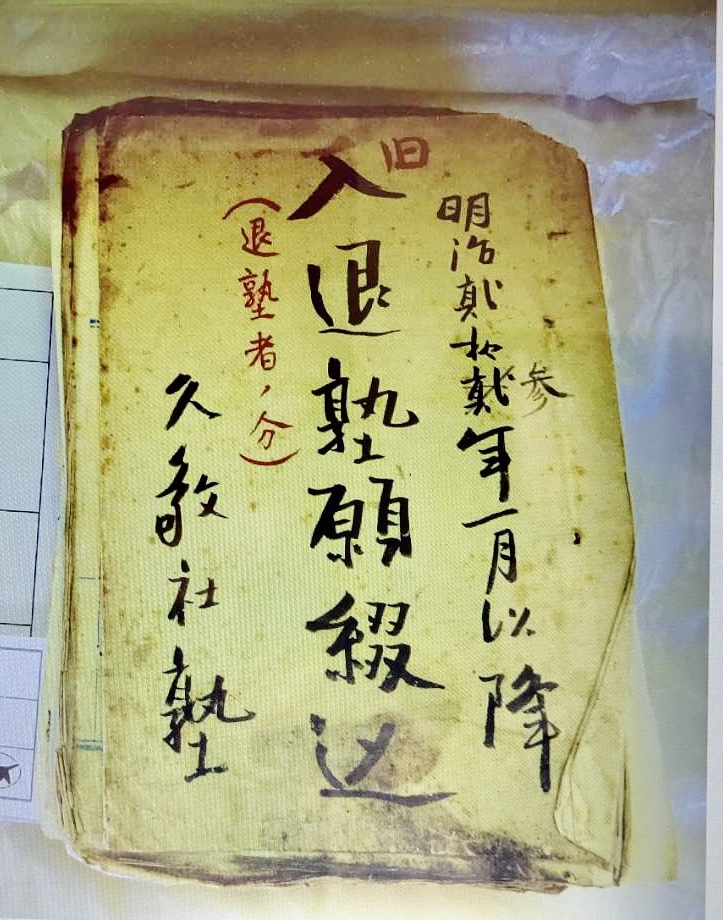 明治貳拾貳年一月以降
参
旧
入退塾願綴込
（退塾者ノ分）
久敬社塾